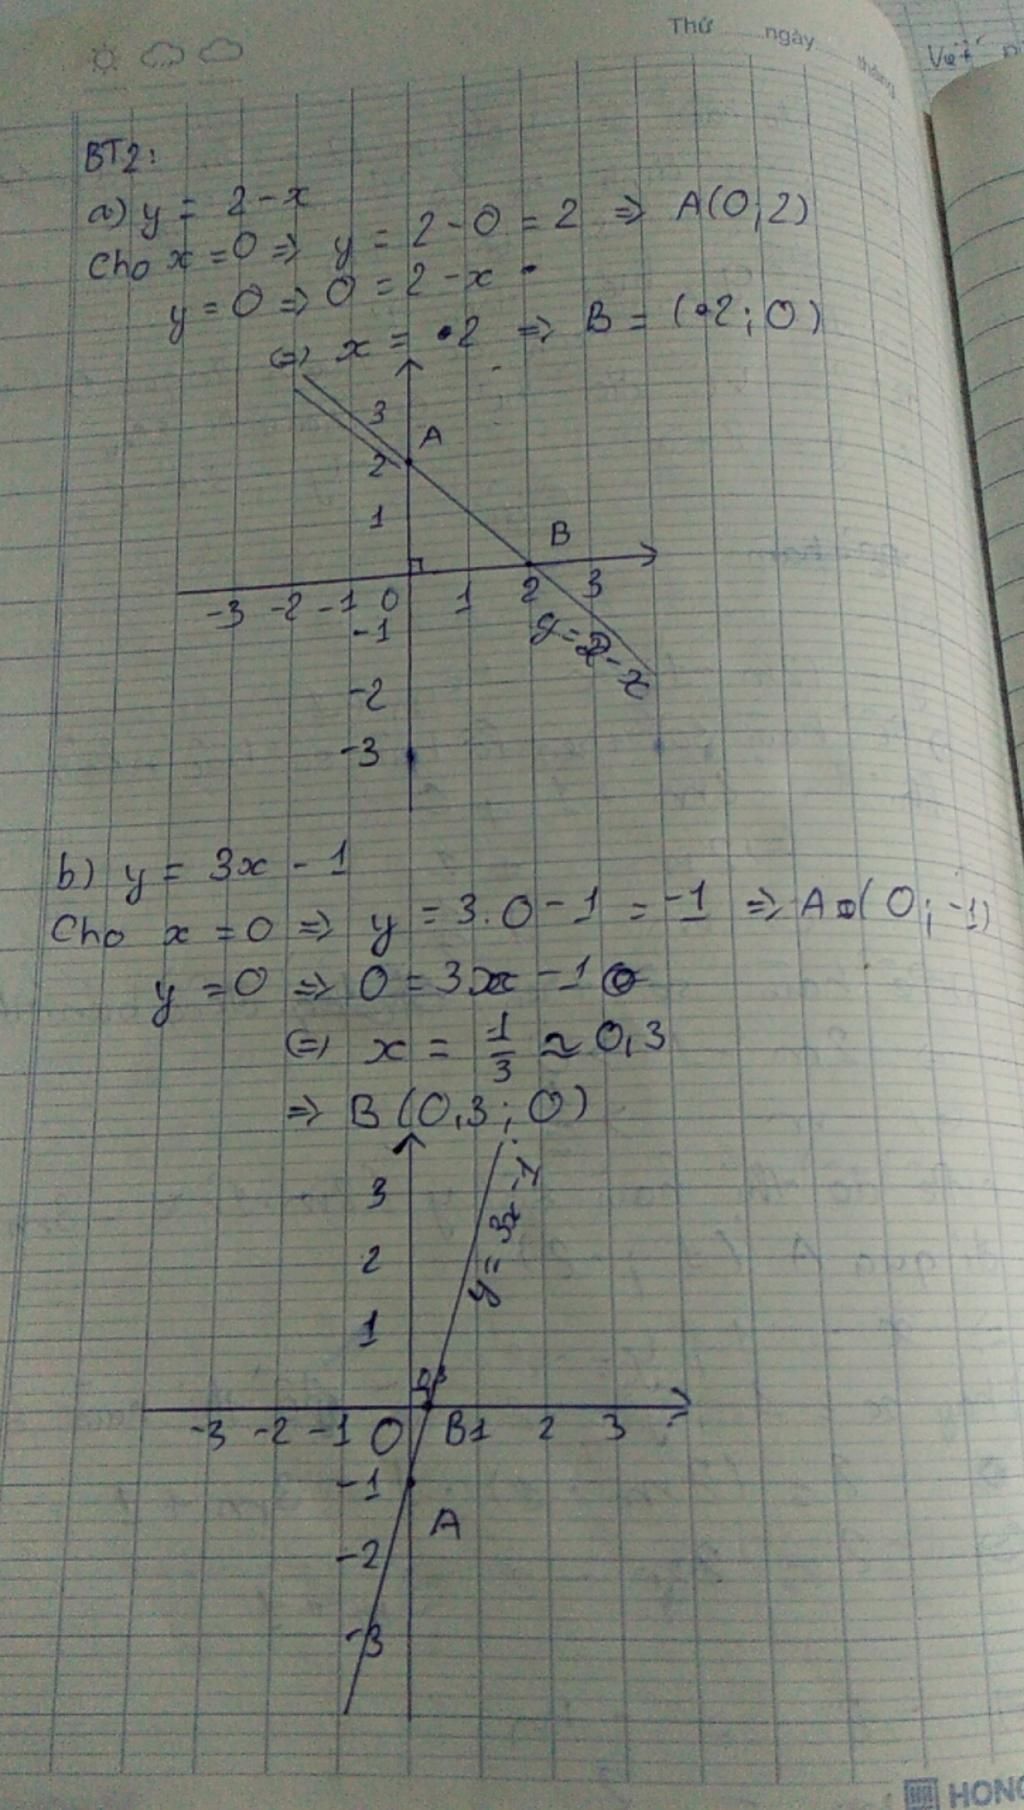 Thứ ngày tháng
Việt
BT2:
a) y = 2 - x
Cho x = 0 => y = 2 - 0 = 2 => A(0;2)
y = 0 => 0 = 2 - x
<=> x = 2 => B = (2; 0)
3
A
2
1
B
-3 -2 -1 0 1 2 3
-1
y = 2 - x
-2
-3
b) y = 3x - 1
Cho x = 0 => y = 3.0 - 1 = -1 => A (0; -1)
y = 0 => 0 = 3x - 1
<=> x = 1/3 ≈ 0,3
=> B (0,3; 0)
3
y = 3x - 1
2
1
0,3
-3 -2 -1 0 B 1 2 3
-1
A
-2
-3
HONG